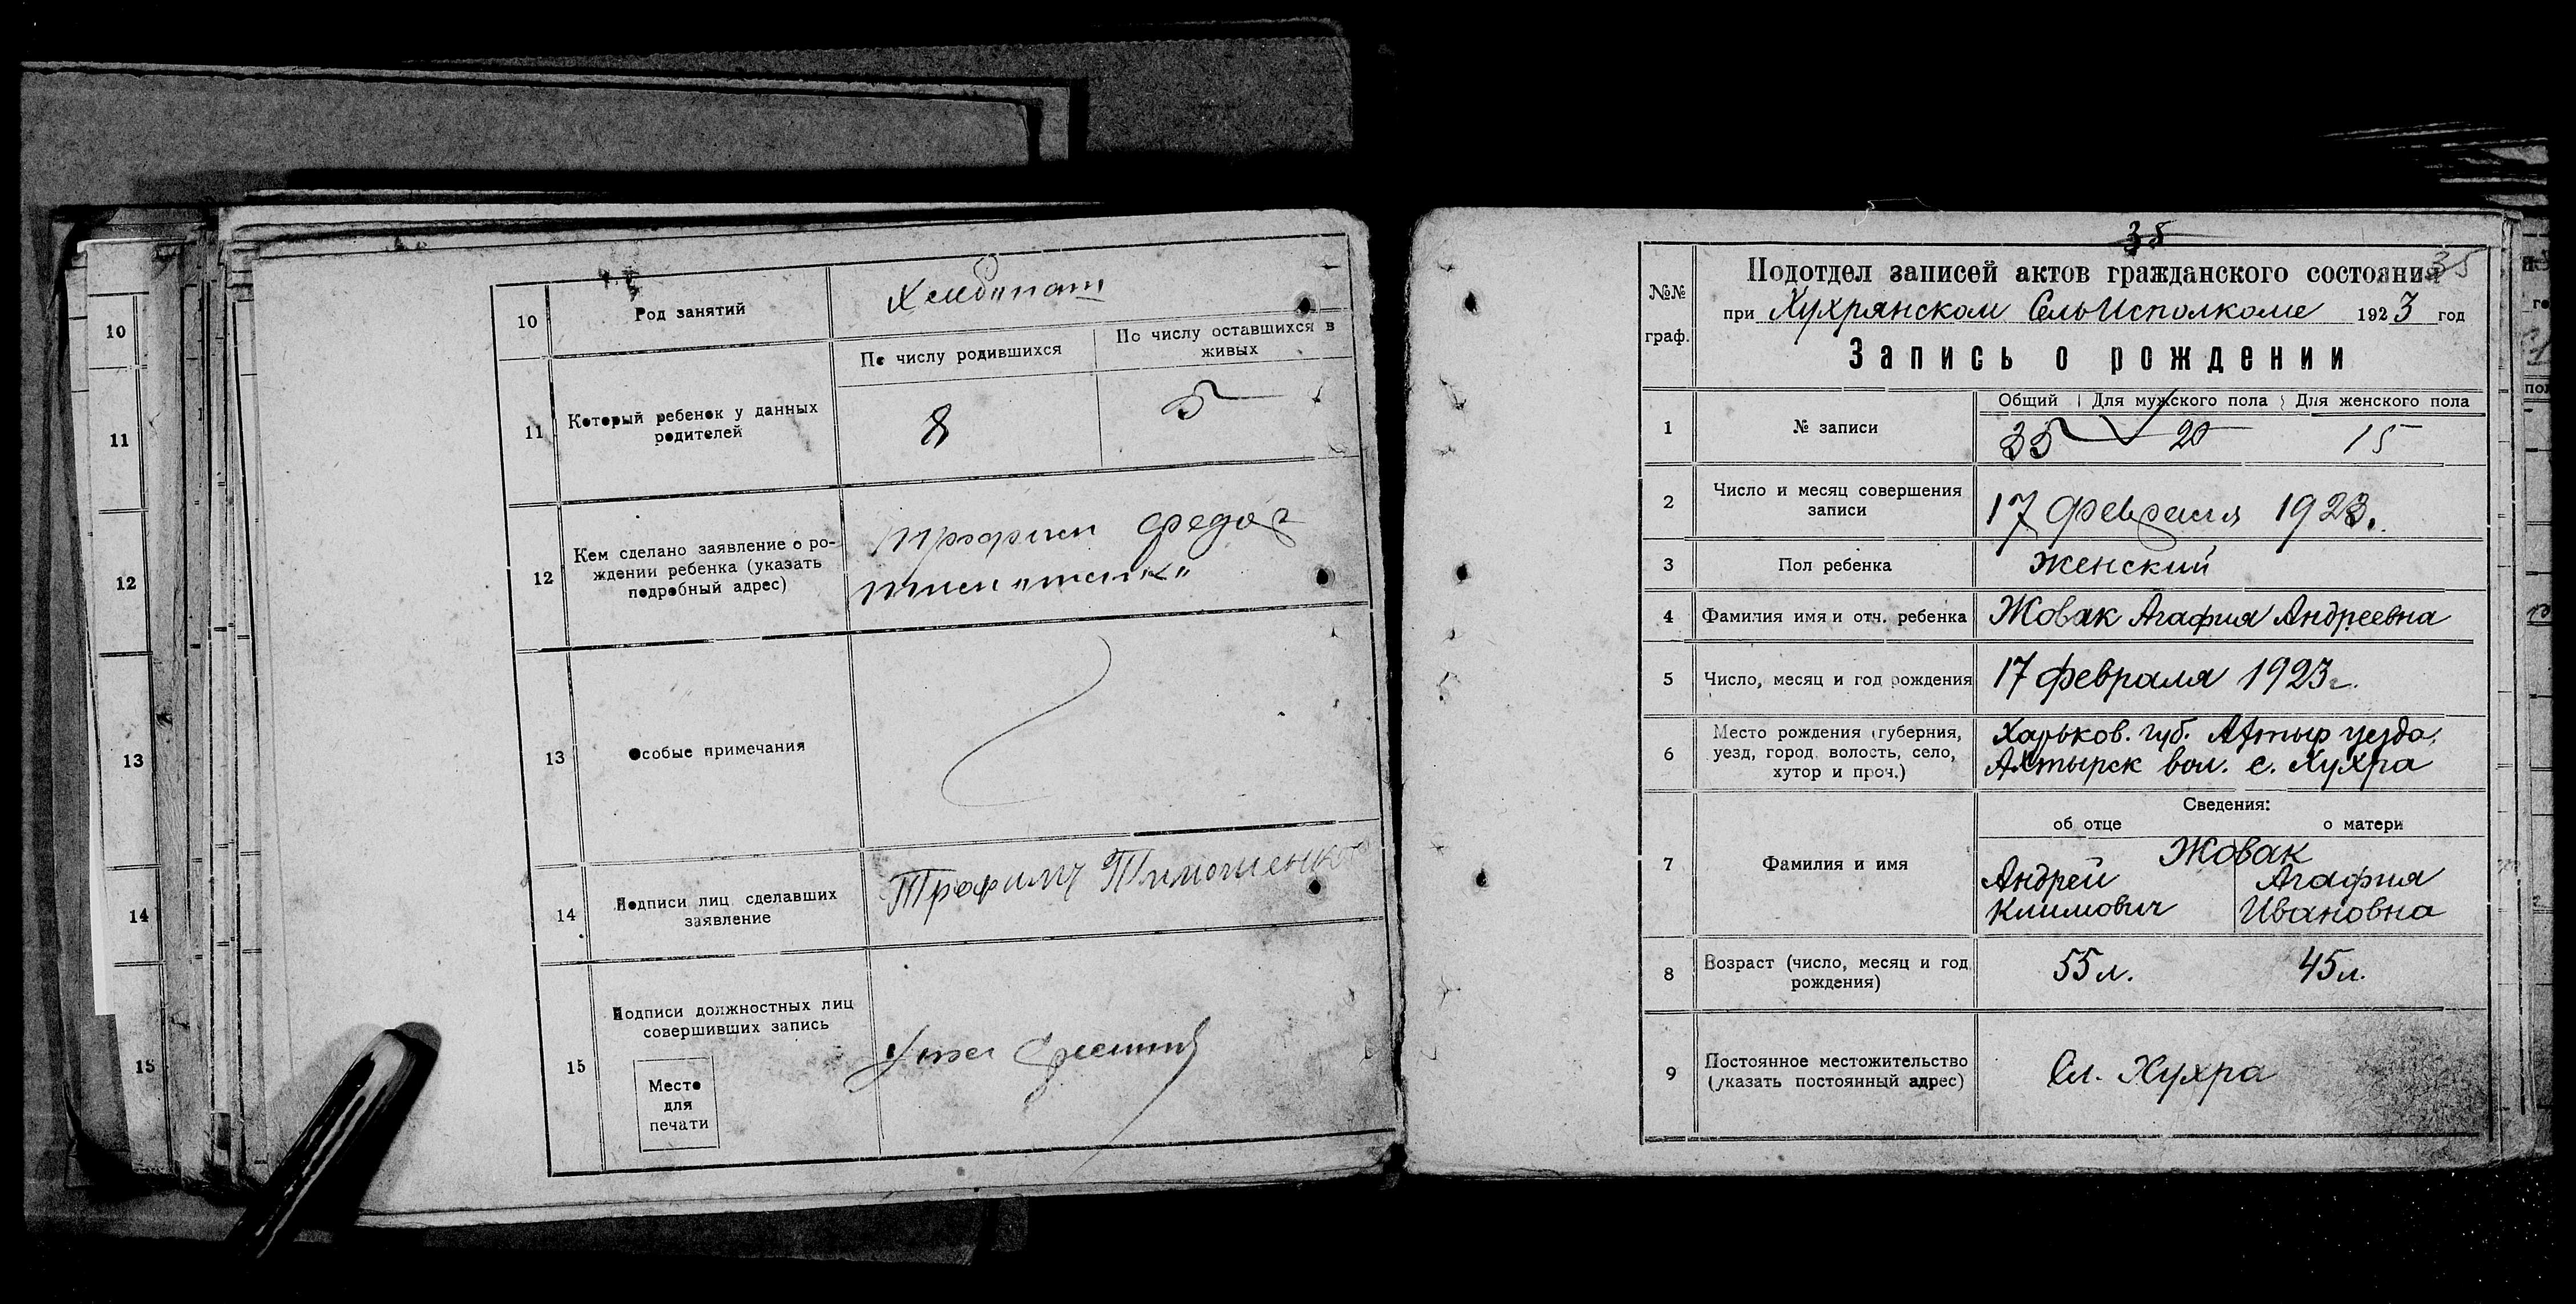 10
11
12
13
14
15
10 Род занятий
11 Который ребенок у данных
родителей
По числу родившихся
По числу оставшихся в
живых
8
5
12 Кем сделано заявление о ро-
ждении ребенка (указать
подробный адрес)
13 Особые примечания
14 Подписи лиц сделавших
заявление
Трофимъ Тимошенко
15 Подписи должностных лиц
совершивших запись
Место
для
печати
35
35
№№
граф.
Подотдел записей актов гражданского состояния
при Хухрянском СельИсполкоме 1923 год
Запись о рождении
1 № записи
Общий Для мужского пола Для женского пола
35 20 15
2 Число и месяц совершения
записи
17 Февраля 1923.
3 Пол ребенка Женский
4 Фамилия имя и отч. ребенка Жовак Агафия Андреевна
5 Число, месяц и год рождения 17 февраля 1923 г.
6 Место рождения (губерния,
уезд, город, волость, село,
хутор и проч.)
Харьков. губ. Ахтыр уезда,
Ахтырск вол. с. Хухра
7 Фамилия и имя
Сведения:
об отце о матери
Жовак
Андрей Агафия
Климович Ивановна
8 Возраст (число, месяц и год
рождения)
55 л. 45 л.
9 Постоянное местожительство
(указать постоянный адрес)
Сл. Хухра